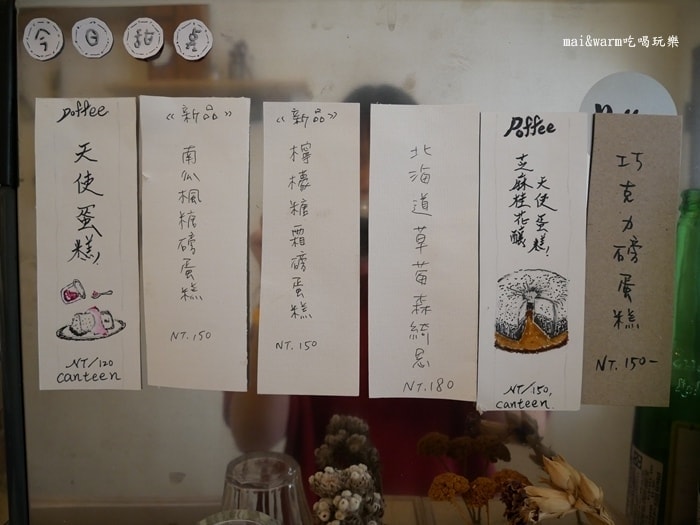 今日甜點
mai&warm吃喝玩樂
Poffee
天使蛋糕!
NT/120
canteen
《新品》
南瓜楓糖磅蛋糕
NT.150
《新品》
檸檬糖霜磅蛋糕
NT.150
北海道草莓森綺忌
NT.180
Poffee
天使蛋糕!
芝麻桂花釀
NT/150.
canteen.
巧克力磅蛋糕
NT.150-